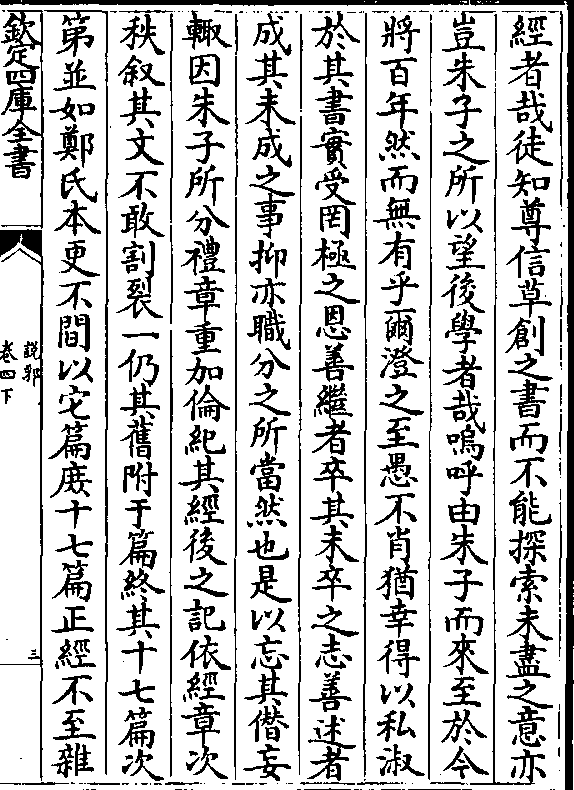 經者哉徒知尊信草創之書而不能探索未盡之意亦
豈朱子之所以望後學者哉嗚呼由朱子而來至於今
將百年然而無有乎爾澄之至愚不肖猶幸得以私淑
於其書實受罔極之恩善繼者卒其未卒之志善述者
成其未成之事抑亦職分之所當然也是以忘其僭妄
輙因朱子所分禮章重加倫紀其經後之記依經章次
秩叙其文不敢割裂一仍其舊附于篇終其十七篇次
第並如鄭氏本更不間以它篇庻十七篇正經不至雜
欽定四庫全書
說郛
卷四下
三